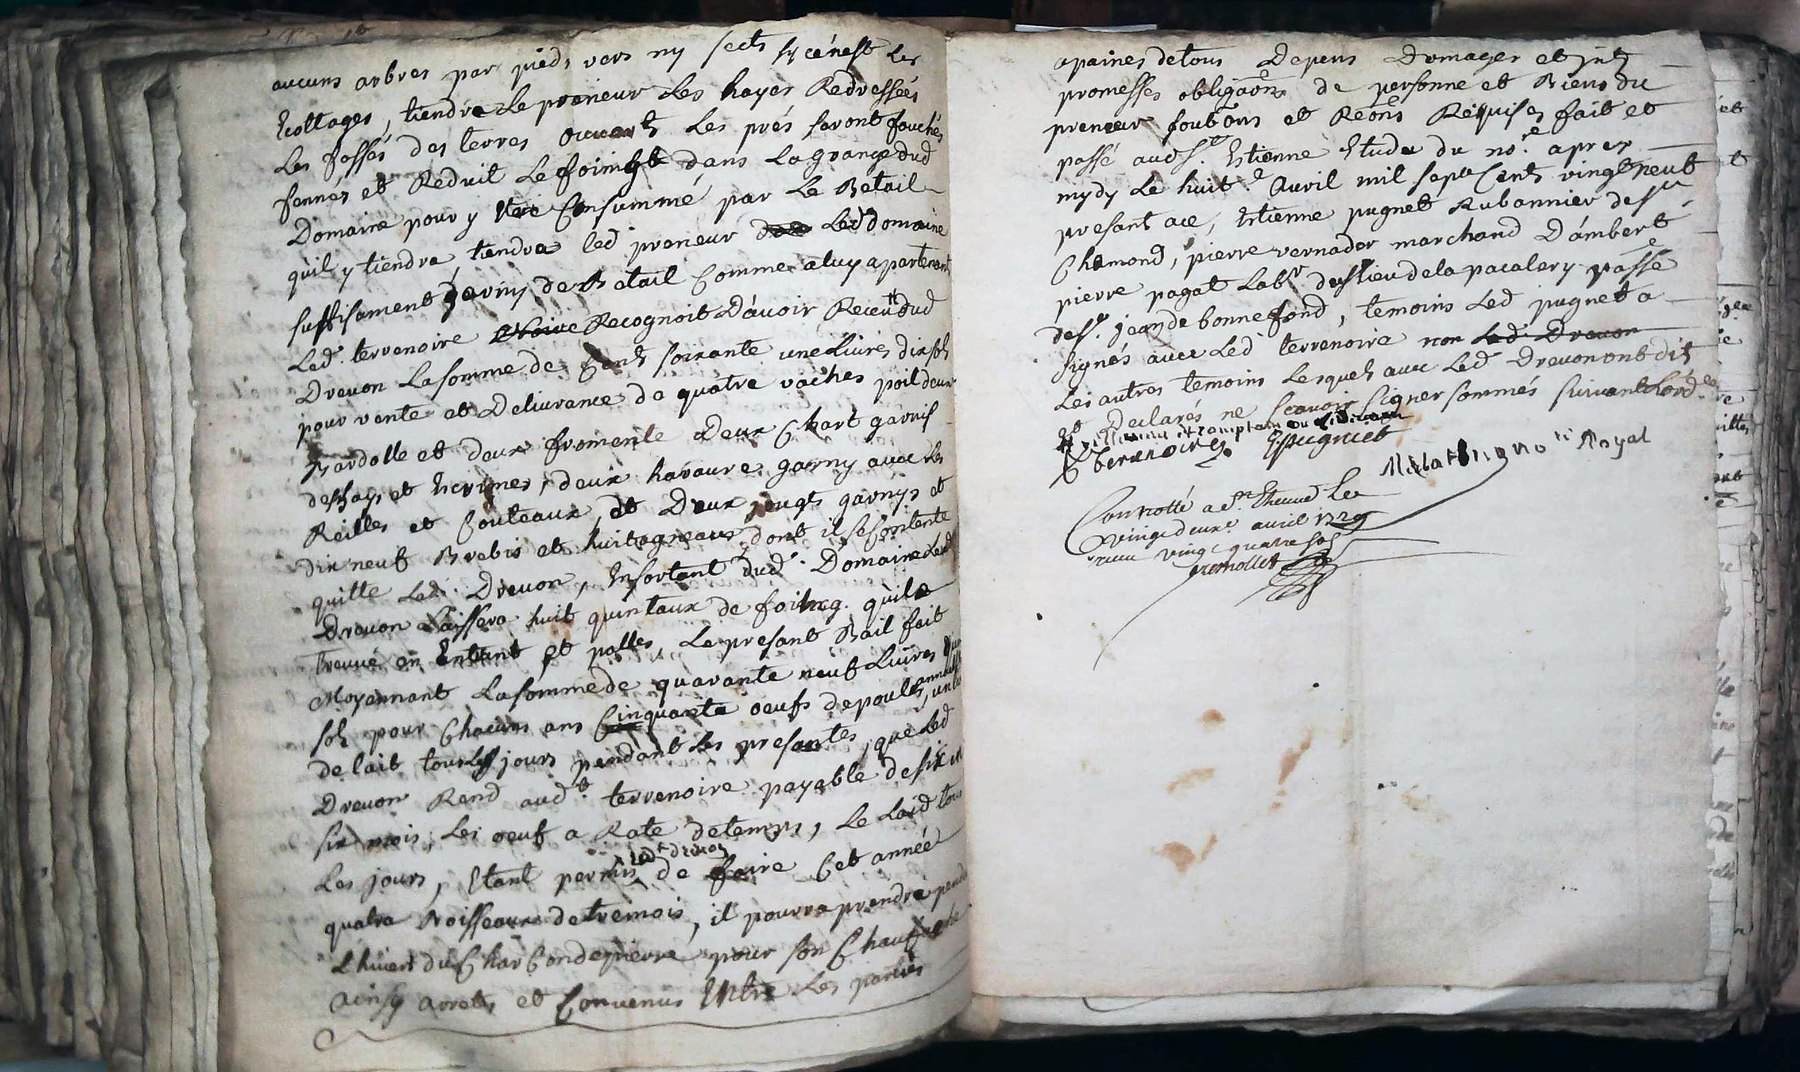 aucuns arbres par pieds vers ny secs sy cénest Les
Ecottages, tiendra Le preneur Les hayes Redressées
Les fossés des terres ouverts Les prés seront fauchés
fennés et Reduit Le foin dans La grange dud
Domaine pour y Etre Consummé par Le Betail
quil y tiendra tiendra led preneur Led domaine
suffisament garny de Betail Comme aluy apartenant
Led. terrenoire Recognoit D'avoir Receu dud
Drevon La somme de Cent soixante une Livres dix sols
pour vente et Delivrance de quatre vaches poil deux
Bardelle et deux fromente Deux Chart garnis
deshays et Ecrines, deux haraire garny avec Les
Reilles et Couteaux, et Deux jougs garnys et
dix neuf Brebis et huit agneaux dont il se contente
quitte Led. Drevon, En sortant dud. Domaine Led
Drevon Laissera huit quintaux de foin quil a
treuvé en Entrant et palles, Le presant Bail fait
Moyennant La somme de quarante neuf Livres
sols pour Chacuns ans Cinquante oeufs de poules,
annuels
de lait tous les jours pendant Les presantes, que Led
Drevon Rend aud.t terrenoire payable de six en
six mois, Les oeufs a Rate de temps, Le Laid tous
led.t drevon
Les jours, Etant permis de faire Cet année
quatre Boisseaux de tremois, il pourra prendre pendt
L'hiver du Charbon de pierre pour son Chaufage
ainsy arrettés et Convenus Entre Les parties
apaines de tous Depens Domages et jnts
promesses obliga͠ons de personne et Biens du
preneur soub͠ons et Re͠ons Requises fait et
passé aud St. Etienne Etude du no.re apres
mydy Le huit.e Avril mil sept Cents vingt neuf
presant a ce, Etienne pugnet Rubannier de St
Chamond, pierre vernador marchand D'ambert
pierre pagat Lab.r du lieu de la pacalery p͠asse
de St. jean de bonnefond, temoins Led pugnet a
signés avec Led terrenoire non Led Drevon
Les autres temoins Lesquels avec Led Drevon ont dit
et Declarés ne scavoir signer sommés suivant Lord.ce
terrenoire Epugniet
notre Royal
Controllé a St. Etienne Le
vingt deuxe avril 1729
receu vingt quatre sols